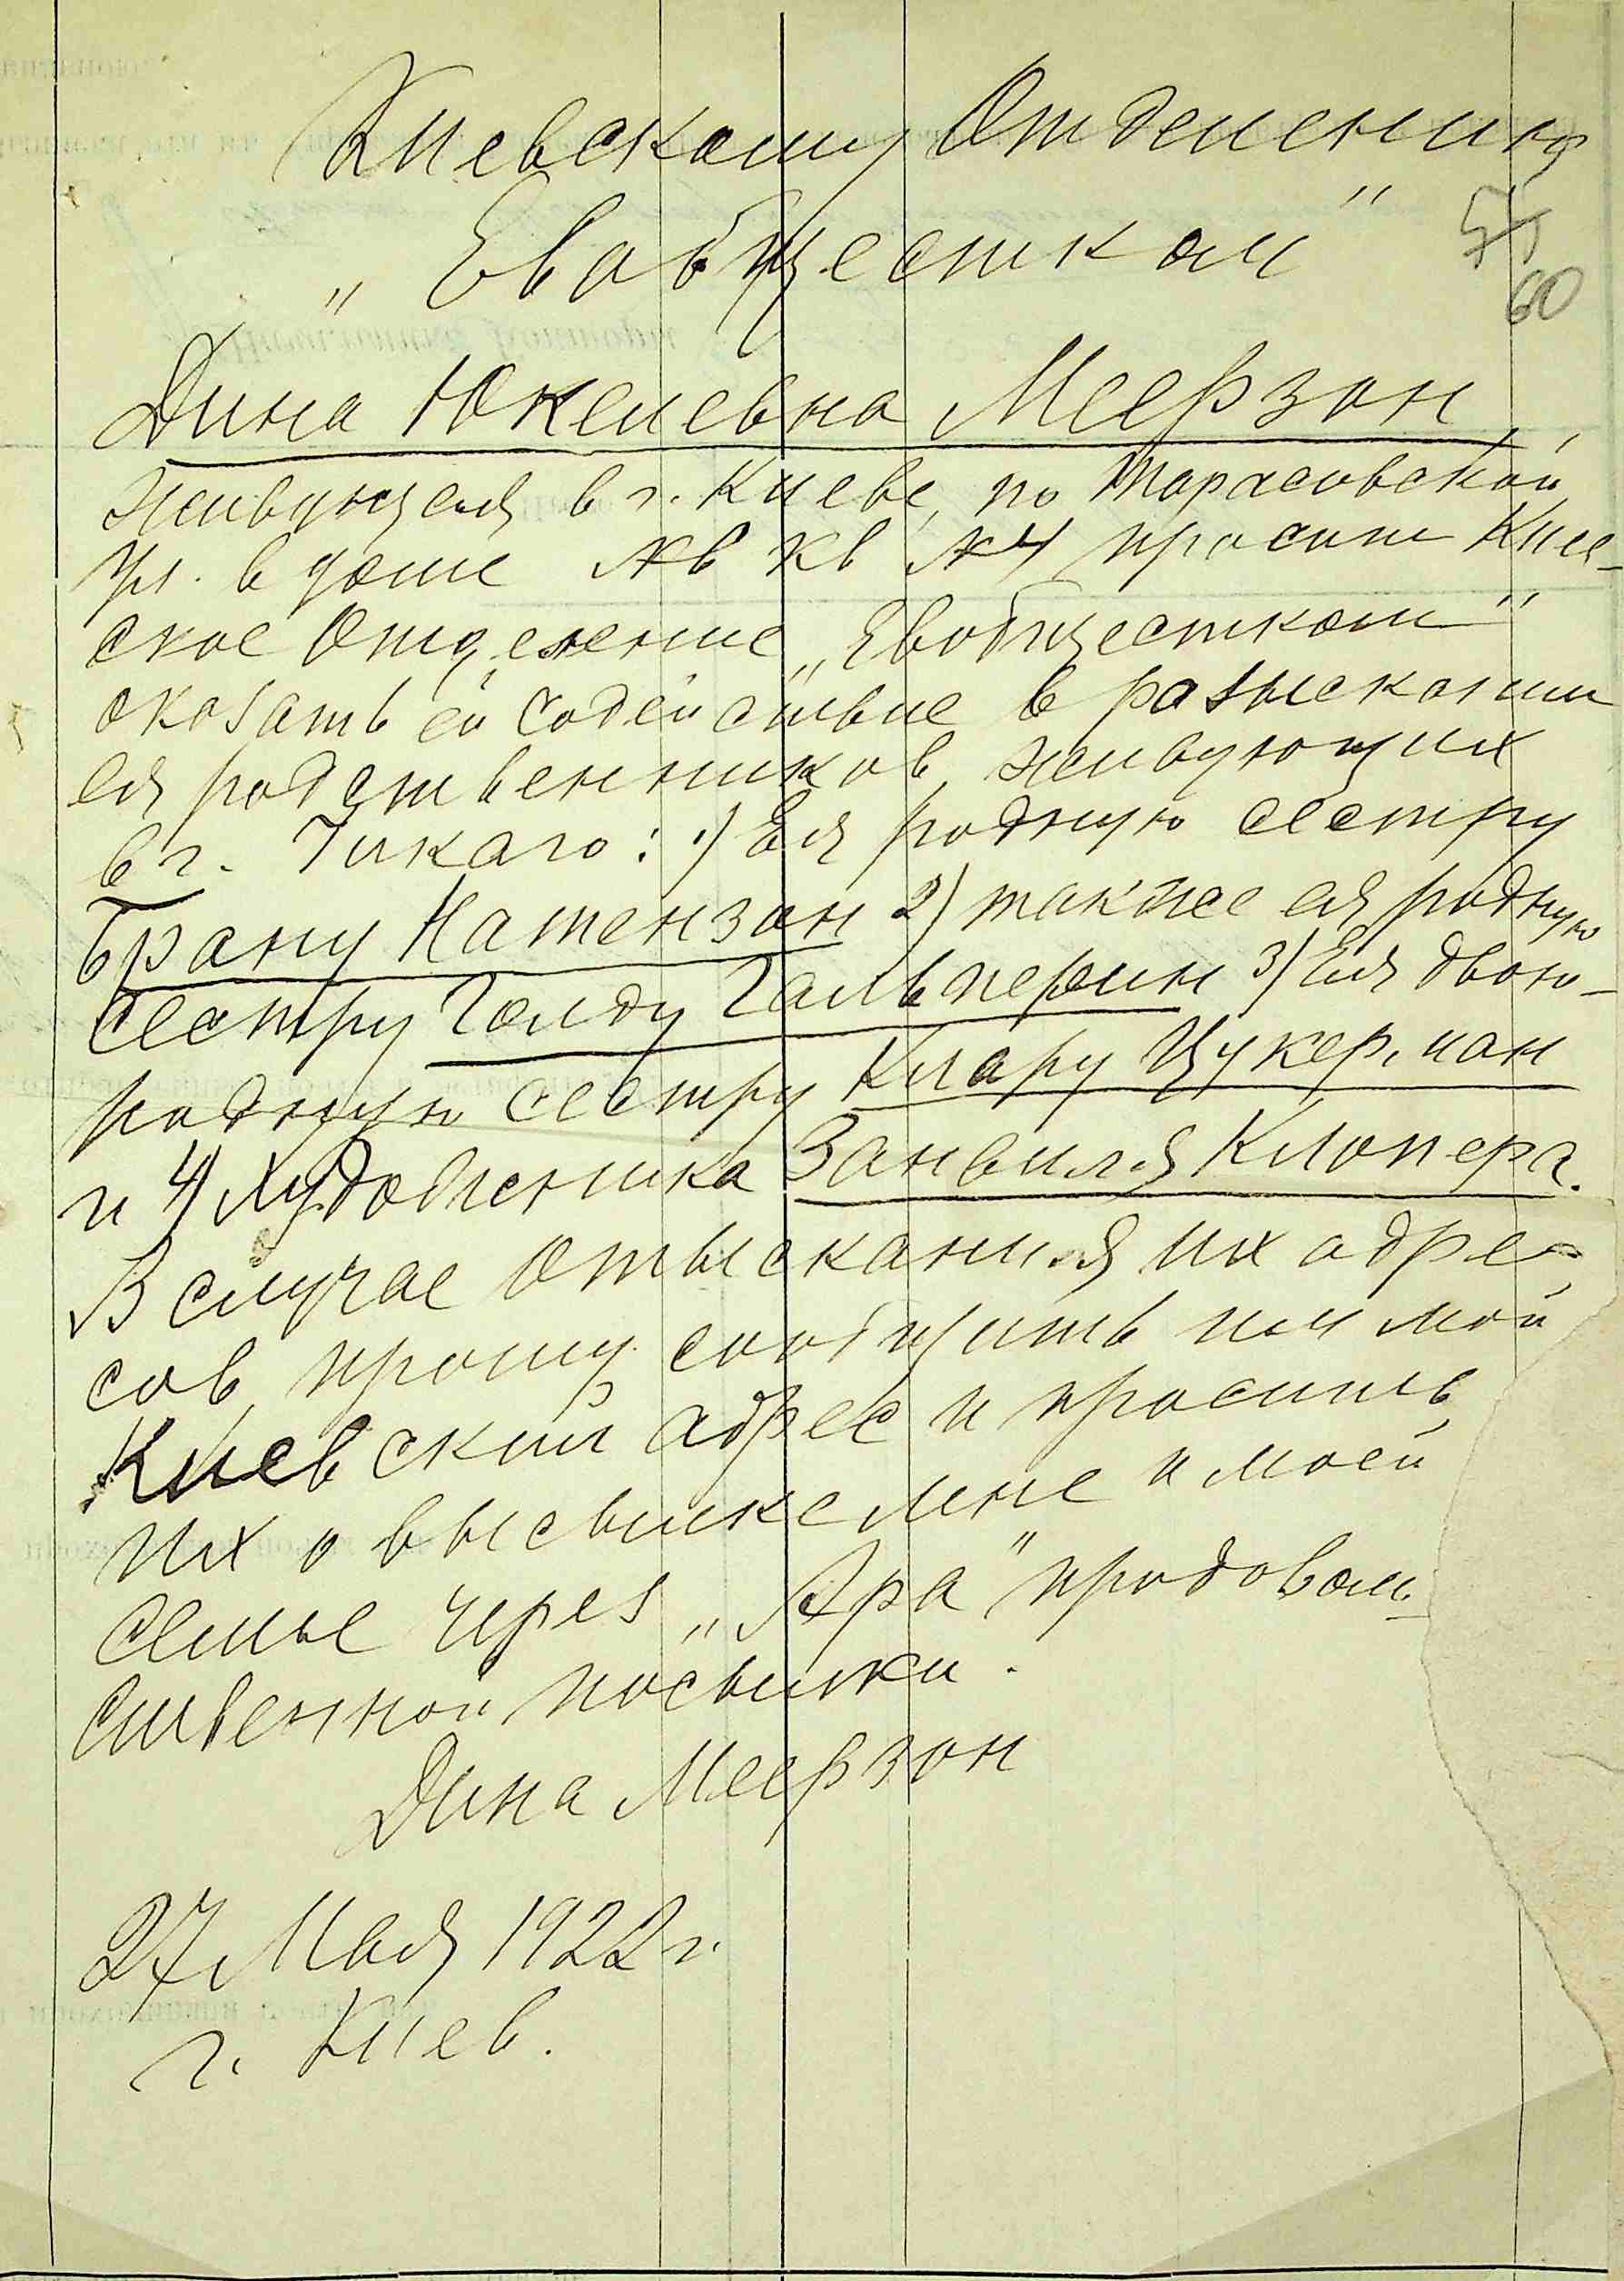 Киевскому Отделению
„Евобщестком"
60
Дина Юкелевна Меерзон,
живущая в г. Киеве, по Тарасовской
ул. в доме № 6 кв № 4 просит Кие-
ское Отделение „Евобщестком"
оказать ей содействие в разыскании
ея родственников, живующих
в г. Чикаго: 1) Ея родную сестру
Брану Натензон 2) также ея родную
сестру Голду Гальперин 3) Ея двою-
родную сестру Клару Цукерман
и 4) Художника Занвиля Клопера.
В случае отыскания их адре-
сов, прошу сообщить им мой
Киевский адрес и просить
их о высылке мне и моей
семье через „Ара" продоволь-
ственной посылки.
Дина Меерзон
27 Мая 1922 г.
г. Киев.